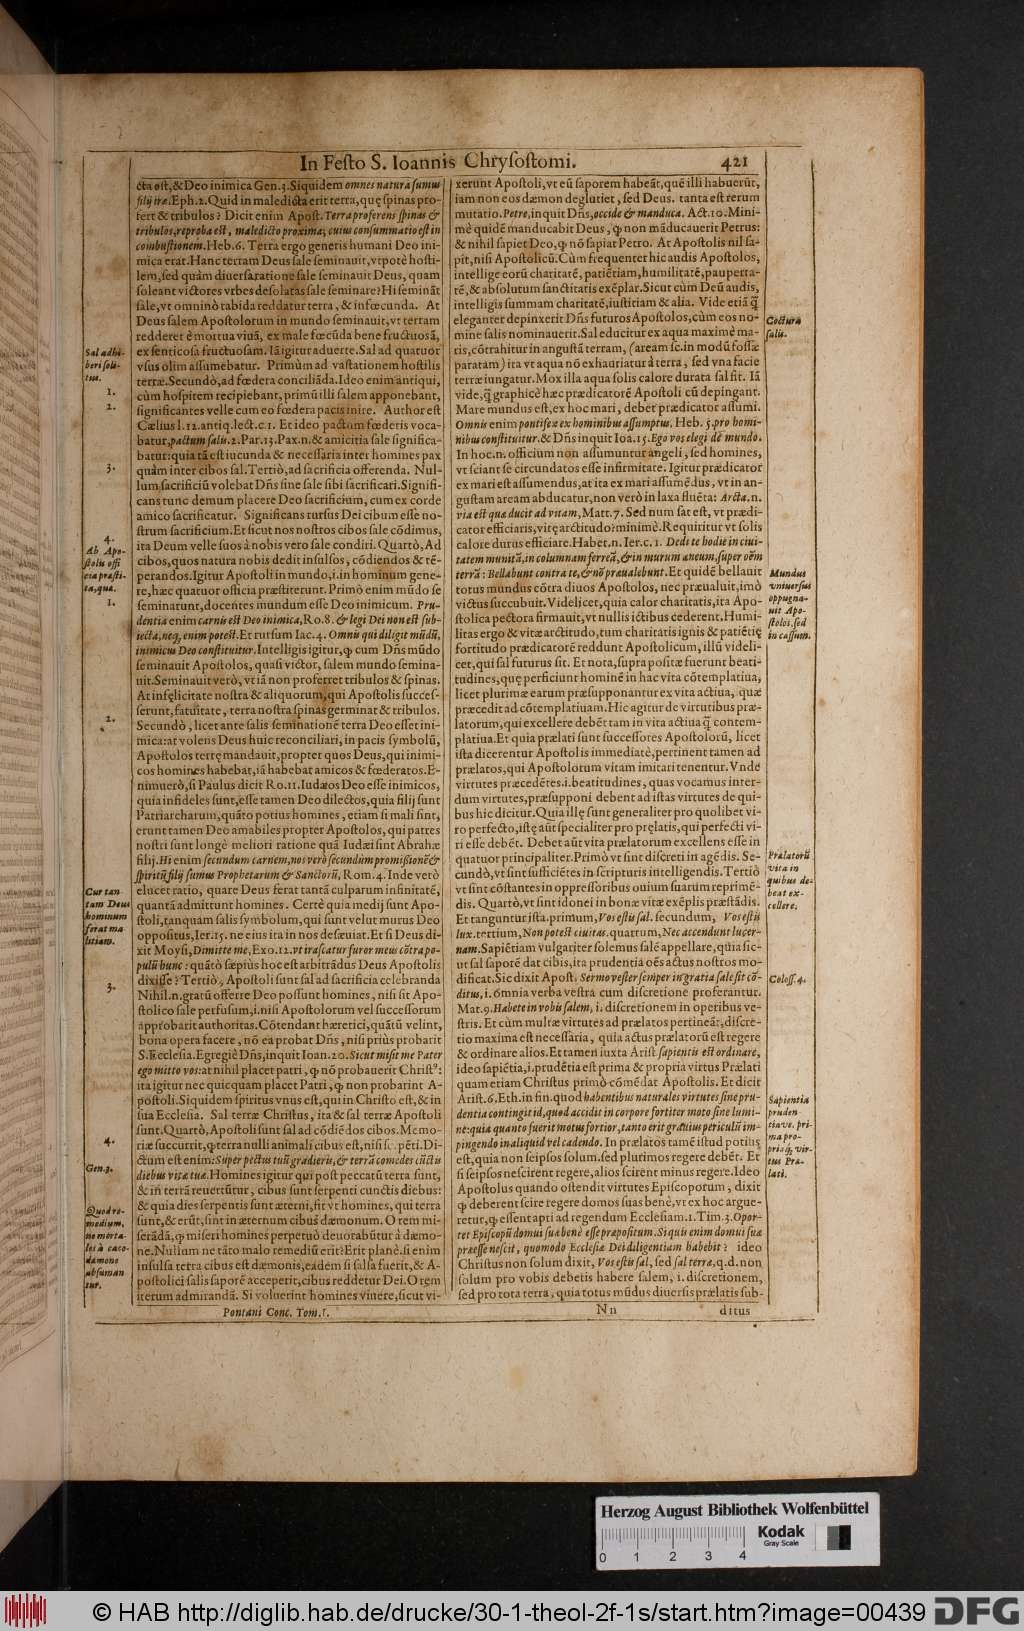 In Feſto S. Ioannis Chryſoſtomi. 421
cta eſt,& Deo inimica Gen.3. Siquidem omnes natura ſumus
filij iræ. Eph.2. Quid in maledicta erit terra, quę ſpinas pro-
fert & tribulos? Dicit enim Apoſt. Terra proferens ſpinas &
tribulos, reproba eſt, maledicto proxima, cuius conſummatio eſt in
combuſtionem. Heb.6. Terra ergo generis humani Deo ini-
mica erat. Hanc terram Deus ſale ſeminauit, vtpotè hoſti-
lem, ſed quàm diuerſa ratione ſale ſeminauit Deus, quam
ſoleant victores vrbes deſolatas ſale ſeminare? Hi ſemināt
ſale, vt omninò tabida reddatur terra, & infœcunda. At
Deus ſalem Apoſtolorum in mundo ſeminauit, vt terram
redderet è mortua viuā, ex male fœcūda bene fructuosā,
ex ſenticoſa fructuoſam. Iā igitur aduerte. Sal ad quatuor
vſus olim aſſumebatur. Primùm ad vaſtationem hoſtilis
terræ. Secundò, ad fœdera conciliāda. Ideo enim antiqui,
cùm hoſpitem recipiebant, primū illi ſalem apponebant,
ſignificantes velle cum eo fœdera pacis inire. Author eſt
Cælius l.12.antiq.lect.c.1. Et ideo pactum fœderis voca-
batur, pactum ſalis. 2.Par.13. Pax.n.& amicitia ſale ſignifica-
batur: quia tā eſt iucunda & neceſſaria inter homines pax
quàm inter cibos ſal. Tertiò, ad ſacrificia offerenda. Nul-
lum ſacrificiū volebat Dn̄s ſine ſale ſibi ſacrificari. Signifi-
cans tunc demum placere Deo ſacrificium, cum ex corde
amico ſacrificatur. Significans rurſus Dei cibum eſſe no-
ſtrum ſacrificium. Et ſicut nos noſtros cibos ſale cōdimus,
ita Deum velle ſuos à nobis vero ſale conditi. Quartò, Ad
cibos, quos natura nobis dedit inſulſos, cōdiendos & tē-
perandos. Igitur Apoſtoli in mundo, i. in hominum gene-
re, hæc quatuor officia præſtiterunt. Primò enim mūdo ſe
ſeminarunt, docentes mundum eſſe Deo inimicum. Pru-
dentia enim carnis eſt Deo inimica, Ro.8. & legi Dei non eſt ſub-
iecta, neq; enim poteſt. Et rurſum Iac.4. Omnis qui diligit mūdū,
inimicus Deo conſtituitur. Intelligis igitur, ꝙ cum Dn̄s mūdo
ſeminauit Apoſtolos, quaſi victor, ſalem mundo ſemina-
uit. Seminauit verò, vt iā non proferret tribulos & ſpinas.
At infęlicitate noſtra & aliquorum, qui Apoſtolis ſucceſ-
ſerunt, fatuitate, terra noſtra ſpinas germinat & tribulos.
Secundò, licet ante ſalis ſeminationē terra Deo eſſet ini-
mica: at volens Deus huic reconciliari, in pacis ſymbolū,
Apoſtolos terrę mandauit, propter quos Deus, qui inimi-
cos homines habebat, iā habebat amicos & fœderatos. E-
nimuerò, ſi Paulus dicit Ro.11. Iudæos Deo eſſe inimicos,
quia infideles ſunt, eſſe tamen Deo dilectos, quia filij ſunt
Patriarcharum, quāto potius homines, etiam ſi mali ſint,
erunt tamen Deo amabiles propter Apoſtolos, qui patres
noſtri ſunt longè meliori ratione quā Iudæi ſint Abrahæ
filij. Hi enim ſecundum carnem, nos verò ſecundùm promiſionē &
ſpiritū filij ſumus Prophetarum & Sanctorū, Rom.4. Inde verò
elucet ratio, quare Deus ferat tantā culparum infinitatē,
quantā admittunt homines. Certè quia medij ſunt Apo-
ſtoli, tanquam ſalis ſymbolum, qui ſunt velut murus Deo
oppoſitus, Ier.15. ne eius ita in nos deſæuiat. Et ſi Deus di-
xit Moyſi, Dimitte me, Exo.12. vt iraſcatur furor meus cōtra po-
pulū hunc: quātò ſæpiùs hoc eſt arbitrādus Deus Apoſtolis
dixiſſe? Tertiò, Apoſtoli ſunt ſal ad ſacrificia celebranda
Nihil.n.gratū offerre Deo poſſunt homines, niſi ſit Apo-
ſtolico ſale perfuſum, i. niſi Apoſtolorum vel ſucceſſorum
approbarit authoritas. Cōtendant hæretici, quātū velint,
bona opera facere, nō ea probat Dn̄s, niſi priùs probarit
S. Eccleſia. Egregiè Dn̄s, inquit Ioan.20. Sicut miſit me Pater
ego mitto vos: at nihil placet patri, ꝙ nō probauerit Chriſtꝰ:
ita igitur nec quicquam placet Patri, ꝙ non probarint A-
poſtoli. Siquidem ſpiritus vnus eſt, qui in Chriſto eſt, & in
ſua Eccleſia. Sal terræ Chriſtus, ita & ſal terræ Apoſtoli
ſunt. Quartò, Apoſtoli ſunt ſal ad cōdiēdos cibos. Memo-
riæ ſuccurrit, ꝙ terra nulli animali cibus eſt, niſi ſerpēti. Di-
ctum eſt enim: Super pectus tuū gradieris, & terrā comedes cūctis
diebus vitæ tuæ. Homines igitur qui poſt peccatū terra ſunt,
& in terrā reuertūtur, cibus ſunt ſerpenti cunctis diebus:
& quia dies ſerpentis ſunt æterni, fit vt homines, qui terra
ſunt, & erūt, ſint in æternum cibus dæmonum. O rem mi-
ſerādā, ꝙ miſeri homines perpetuò deuorabūtur à dæmo-
ne. Nullum ne tāto malo remediū erit? Erit planè. ſi enim
inſulſa terra cibus eſt dæmonis, eadem ſi ſalſa fuerit, & A-
poſtolici ſalis ſaporē acceperit, cibus reddetur Dei. O rem
iterum admirandā. Si voluerint homines viuere, ſicut vi-
Pontani Conc. Tom.1.
Sal adhi-
beri ſoli-
tus.
1.
2.
3.
4.
Ab Apo-
ſtolis offi
cia præſti-
ta, qua.
1.
2.
Cur tan-
tam Deus
hominum
ferat ma
litiam.
3.
4.
Gen.3.
Quod re-
medium,
ne morta-
les à caco-
dæmone
abſuman
tur.
xerunt Apoſtoli, vt eū ſaporem habeāt, quē illi habuerūt,
iam non eos dæmon deglutiet, ſed Deus. tanta eſt rerum
mutatio. Petre, inquit Dn̄s, occide & manduca. Act.10. Mini-
mè quidē manducabit Deus, ꝙ non māducauerit Petrus:
& nihil ſapiet Deo, ꝙ nō ſapiat Petro. At Apoſtolis nil ſa-
pit, niſi Apoſtolicū. Cùm frequenter hic audis Apoſtolos,
intellige eorū charitatē, patiētiam, humilitatē, pauperta-
tē, & abſolutum ſanctitatis exēplar. Sicut cùm Deū audis,
intelligis ſummam charitatē, iuſtitiam & alia. Vide etiā q̃
eleganter depinxerit Dn̄s futuros Apoſtolos, cùm eos no-
mine ſalis nominauerit. Sal educitur ex aqua maximè ma-
ris, cōtrahitur in anguſtā terram, (aream ſc. in modū foſſæ
paratam) ita vt aqua nō exhauriatur à terra, ſed vna facie
terræ iungatur. Mox illa aqua ſolis calore durata ſal fit. Iā
vide, q̃ graphicè hæc prædicatorē Apoſtoli cū depingant.
Mare mundus eſt, ex hoc mari, debet prædicator aſſumi.
Omnis enim pontifex ex hominibus aſſumptus, Heb. 5. pro homi-
nibus conſtituitur. & Dn̄s inquit Ioa.15. Ego vos elegi de mundo.
In hoc.n. officium non aſſumuntur angeli, ſed homines,
vt ſciant ſe circundatos eſſe infirmitate. Igitur prædicator
ex mari eſt aſſumendus, at ita ex mari aſſumēdus, vt in an-
guſtam aream abducatur, non verò in laxa fluēta: Arcta.n.
via eſt quæ ducit ad vitam, Matt.7. Sed num ſat eſt, vt prædi-
cator efficiaris, vitę arctitudo? minimè. Requiritur vt ſolis
calore durus efficiare. Habet.n. Ier.c.1. Dedi te hodie in ciui-
tatem munitā, in columnam ferreā, & in murum æneum, ſuper oēm
terrā: Bellabunt contra te, & nō præualebunt. Et quidē bellauit
totus mundus cōtra diuos Apoſtolos, nec præualuit, imò
victus ſuccubuit. Videlicet, quia calor charitatis, ita Apo-
ſtolica pectora firmauit, vt nullis ictibus cederent. Humi-
litas ergo & vitæ arctitudo, tum charitatis ignis & patiētię
fortitudo prædicatorē reddunt Apoſtolicum, illū videli-
cet, qui ſal futurus ſit. Et nota, ſupra poſitæ fuerunt beati-
tudines, quę perficiunt hominē in hac vita cōtemplatiua,
licet plurimæ earum præſupponantur ex vita actiua, quæ
præcedit ad cōtemplatiuam. Hic agitur de virtutibus præ-
latorum, qui excellere debēt tam in vita actiua q̃ contem-
platiua. Et quia prælati ſunt ſucceſſores Apoſtolorū, licet
iſta dicerentur Apoſtolis immediatè, pertinent tamen ad
prælatos, qui Apoſtolorum vitam imitari tenentur. Vnde
virtutes præcedētes. i. beatitudines, quas vocamus inter-
dum virtutes, præſupponi debent ad iſtas virtutes de qui-
bus hic dicitur. Quia illę ſunt generaliter pro quolibet vi-
ro perfecto, iſtę aūt ſpecialiter pro prelatis, qui perfecti vi-
ri eſſe debēt. Debet aūt vita prælatorum excellens eſſe in
quatuor principaliter. Primò vt ſint diſcreti in agēdis. Se-
cundò, vt ſint ſufficiētes in ſcripturis intelligendis. Tertiò
vt ſint cōſtantes in oppreſſoribus ouium ſuarum reprimē-
dis. Quartò, vt ſint idonei in bonæ vitæ exēplis præſtādis.
Et tanguntur iſta. primum, Vos eſtis ſal. ſecundum, Vos eſtis
lux. tertium, Non poteſt ciuitas. quartum, Nec accendunt lucer-
nam. Sapiētiam vulgariter ſolemus ſalē appellare, quia ſic-
ut ſal ſaporē dat cibis, ita prudentia oēs actus noſtros mo-
dificat. Sic dixit Apoſt. Sermo veſter ſemper in gratia ſale ſit cō-
ditus, i. omnia verba veſtra cum diſcretione proferantur.
Mar.9. Habete in vobis ſalem, i. diſcretionem in operibus ve-
ſtris. Et cùm multæ virtutes ad prælatos pertineāt, diſcre-
tio maxima eſt neceſſaria, quia actus prælatorū eſt regere
& ordinare alios. Et tamen iuxta Ariſt ſapientis eſt ordinare,
ideo ſapiētia, i. prudētia eſt prima & propria virtus Prælati
quam etiam Chriſtus primò cōmēdat Apoſtolis. Et dicit
Ariſt.6.Eth.in fin. quod habentibus naturales virtutes ſine pru-
dentia contingit id, quod accidit in corpore fortiter moto ſine lumi-
ne: quia quanto fuerit motus fortior, tanto erit grauius periculū im-
pingendo in aliquid vel cadendo. In prælatos tamē iſtud potius
eſt, quia non ſeipſos ſolum. ſed plurimos regere debēt. Et
ſi ſeipſos neſcirent regere, alios ſcirent minus regere. Ideo
Apoſtolus quando oſtendit virtutes Epiſcoporum, dixit
ꝙ deberent ſcire regere domos ſuas benè, vt ex hoc argue-
retur, ꝙ eſſent apti ad regendum Eccleſiam. 1.Tim.3. Opor-
tet Epiſcopū domui ſuæ benè eſſe præpoſitum. Si quis enim domui ſuæ
præeſſe neſcit, quomodo Eccleſiæ Dei diligentiam habebit? ideo
Chriſtus non ſolum dixit, Vos eſtis ſal, ſed ſal terræ, q.d. non
ſolum pro vobis debetis habere ſalem, i. diſcretionem,
ſed pro tota terra, quia totus mūdus diuerſis prælatis ſub-
Nn ditus
Coctura
ſalis.
Mundus
vniuerſus
oppugna-
uit Apo-
ſtolos, ſed
in caſſum.
Prælatorū
vita in
quibus de-
beat ex-
cellere.
Coloſſ.4.
Sapientia
pruden-
tiave, pri
ma pro-
priaq; vir-
tus Præ-
lati.
Herzog August Bibliothek Wolfenbüttel
0 1 2 3 4
Kodak
Gray Scale
© HAB http://diglib.hab.de/drucke/30-1-theol-2f-1s/start.htm?image=00439
DFG